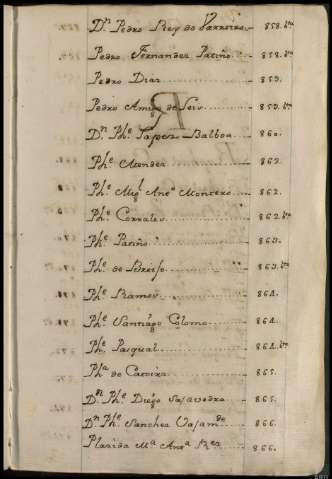 Dn Pedro Rey do Varreiro 858. bta
Pedro Fernandez Patiño 858. bta
Pedro Diaz 859.
Pedro Amigo de Seiv 859. bta
Dn Phe Lopez Balboa 860.
Phe Mendez 862.
Phe Migl Anto Montero 862.
Phe Corrales 862. bta
Phe Patiño 863.
Phe de 863. bta
Phe Ramos 864.
Phe Santiago Colomo 864.
Phe Pasqual 864. bta
Pha de 865.
Dn Phe Diego Saavedra 865.
Dn Phe Sanchez 866.
Plazida Ma Anta Rez 866.